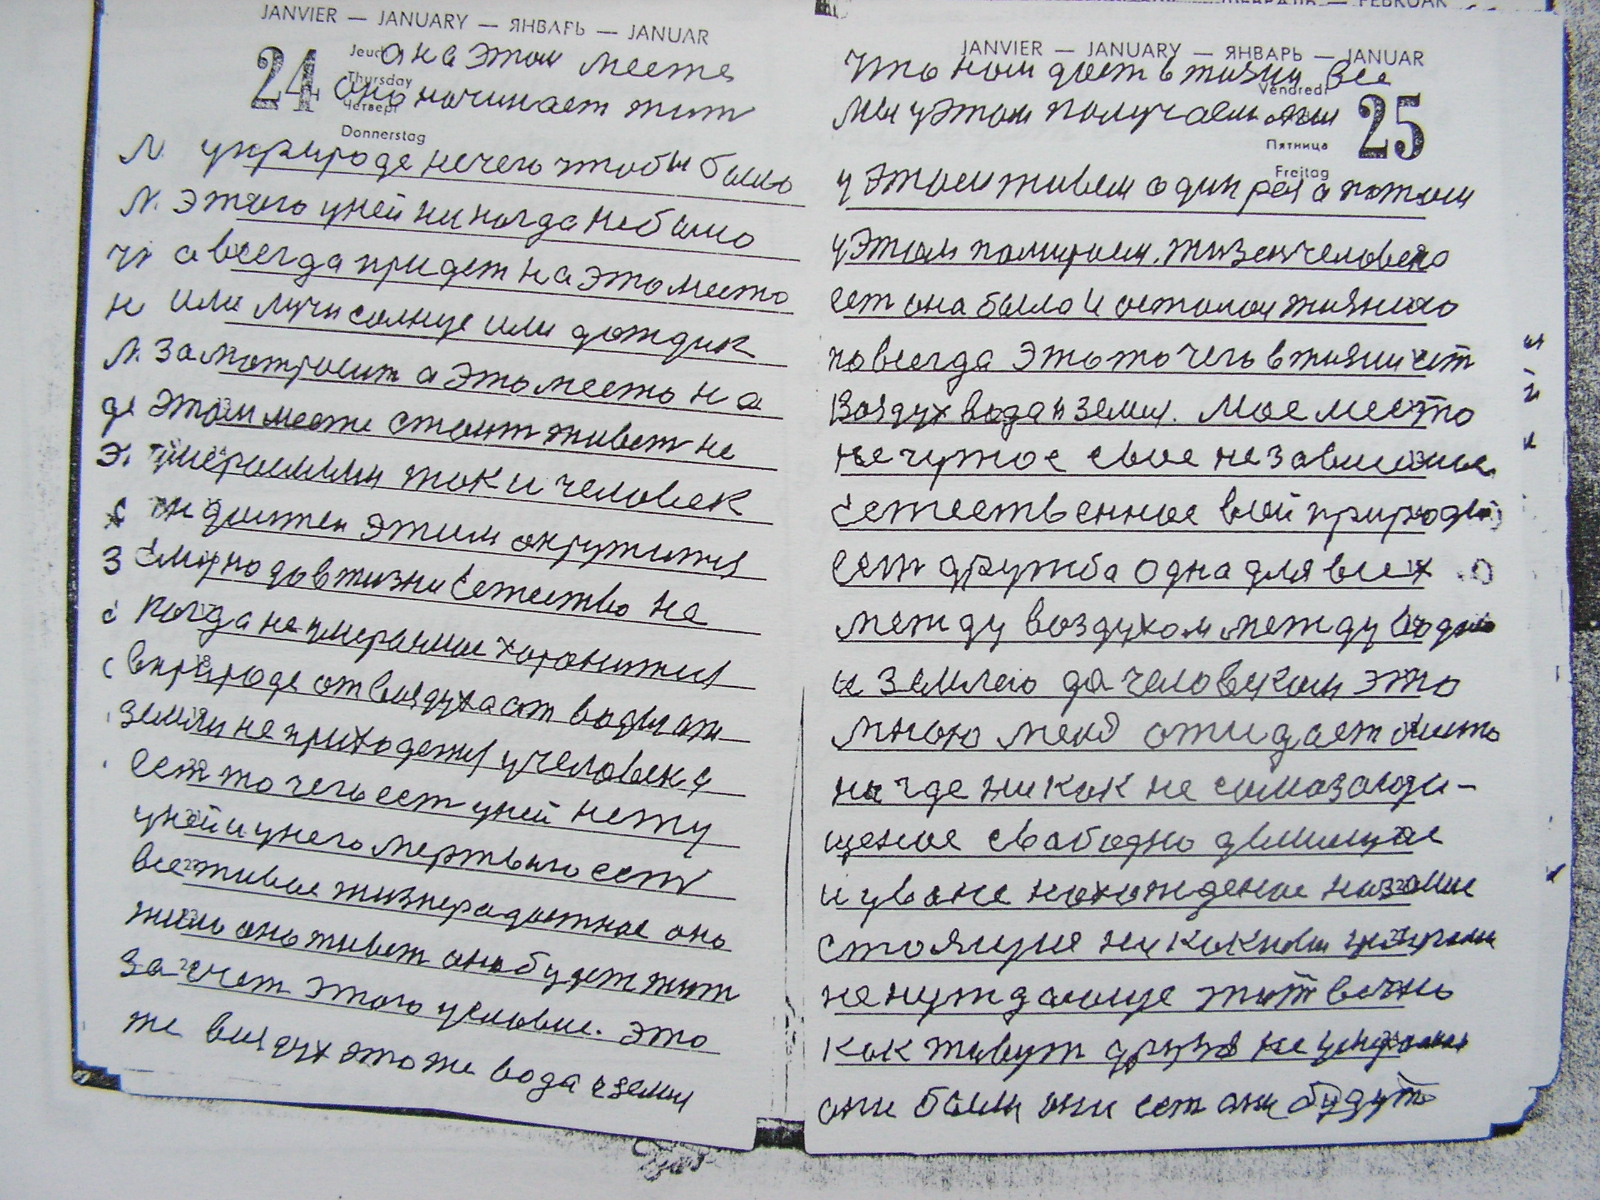 JANVIER — JANUARY — ЯНВАРЬ — JANUAR
24
Jeudi
Thursday
Четверг
Donnerstag
а на этом месте
оно начинает жит
у природе нечего чтобы было
этого у ней никогда небыло
а всегда придет на это место
или лучи солнце или дождик
За мотросит а это место на
этом месте стоит живет не
умераемым так и человек
он должен этим окружится
Ему надо в жизни Естество не
когда не умераемые хоронится
в природе от воздуха от воды от
земли не приходется у человека
ест то чего ест у ней нету
у ней и у него мертвого ест
все живое жизнерадостное оно
жило оно живет оно будет жит
За счет этого условие. Это
же воздух это же вода и земля
JANVIER — JANUARY — ЯНВАРЬ — JANUAR
25
Vendredi
Пятница
Freitag
Что нам дает в жизни все
Мы у этом получаем
у этом живем один раз а потом
у этом помираем. Жизен человека
ест она была и осталас
навсегда это то чего в жизни ест
Воздух вода и земля. Мое место
не чужое свое не зависимое
Естественное в ней природы
ест дружба одна для всех
между воздухом между водою
и землею да человеком это
мною меня ожидает место
не где никак не самозащи-
щеное свабодно
и у нахождение
стоящие никаких
не нуждающие жит вечно
как живут друзя не
они были они ест они будут